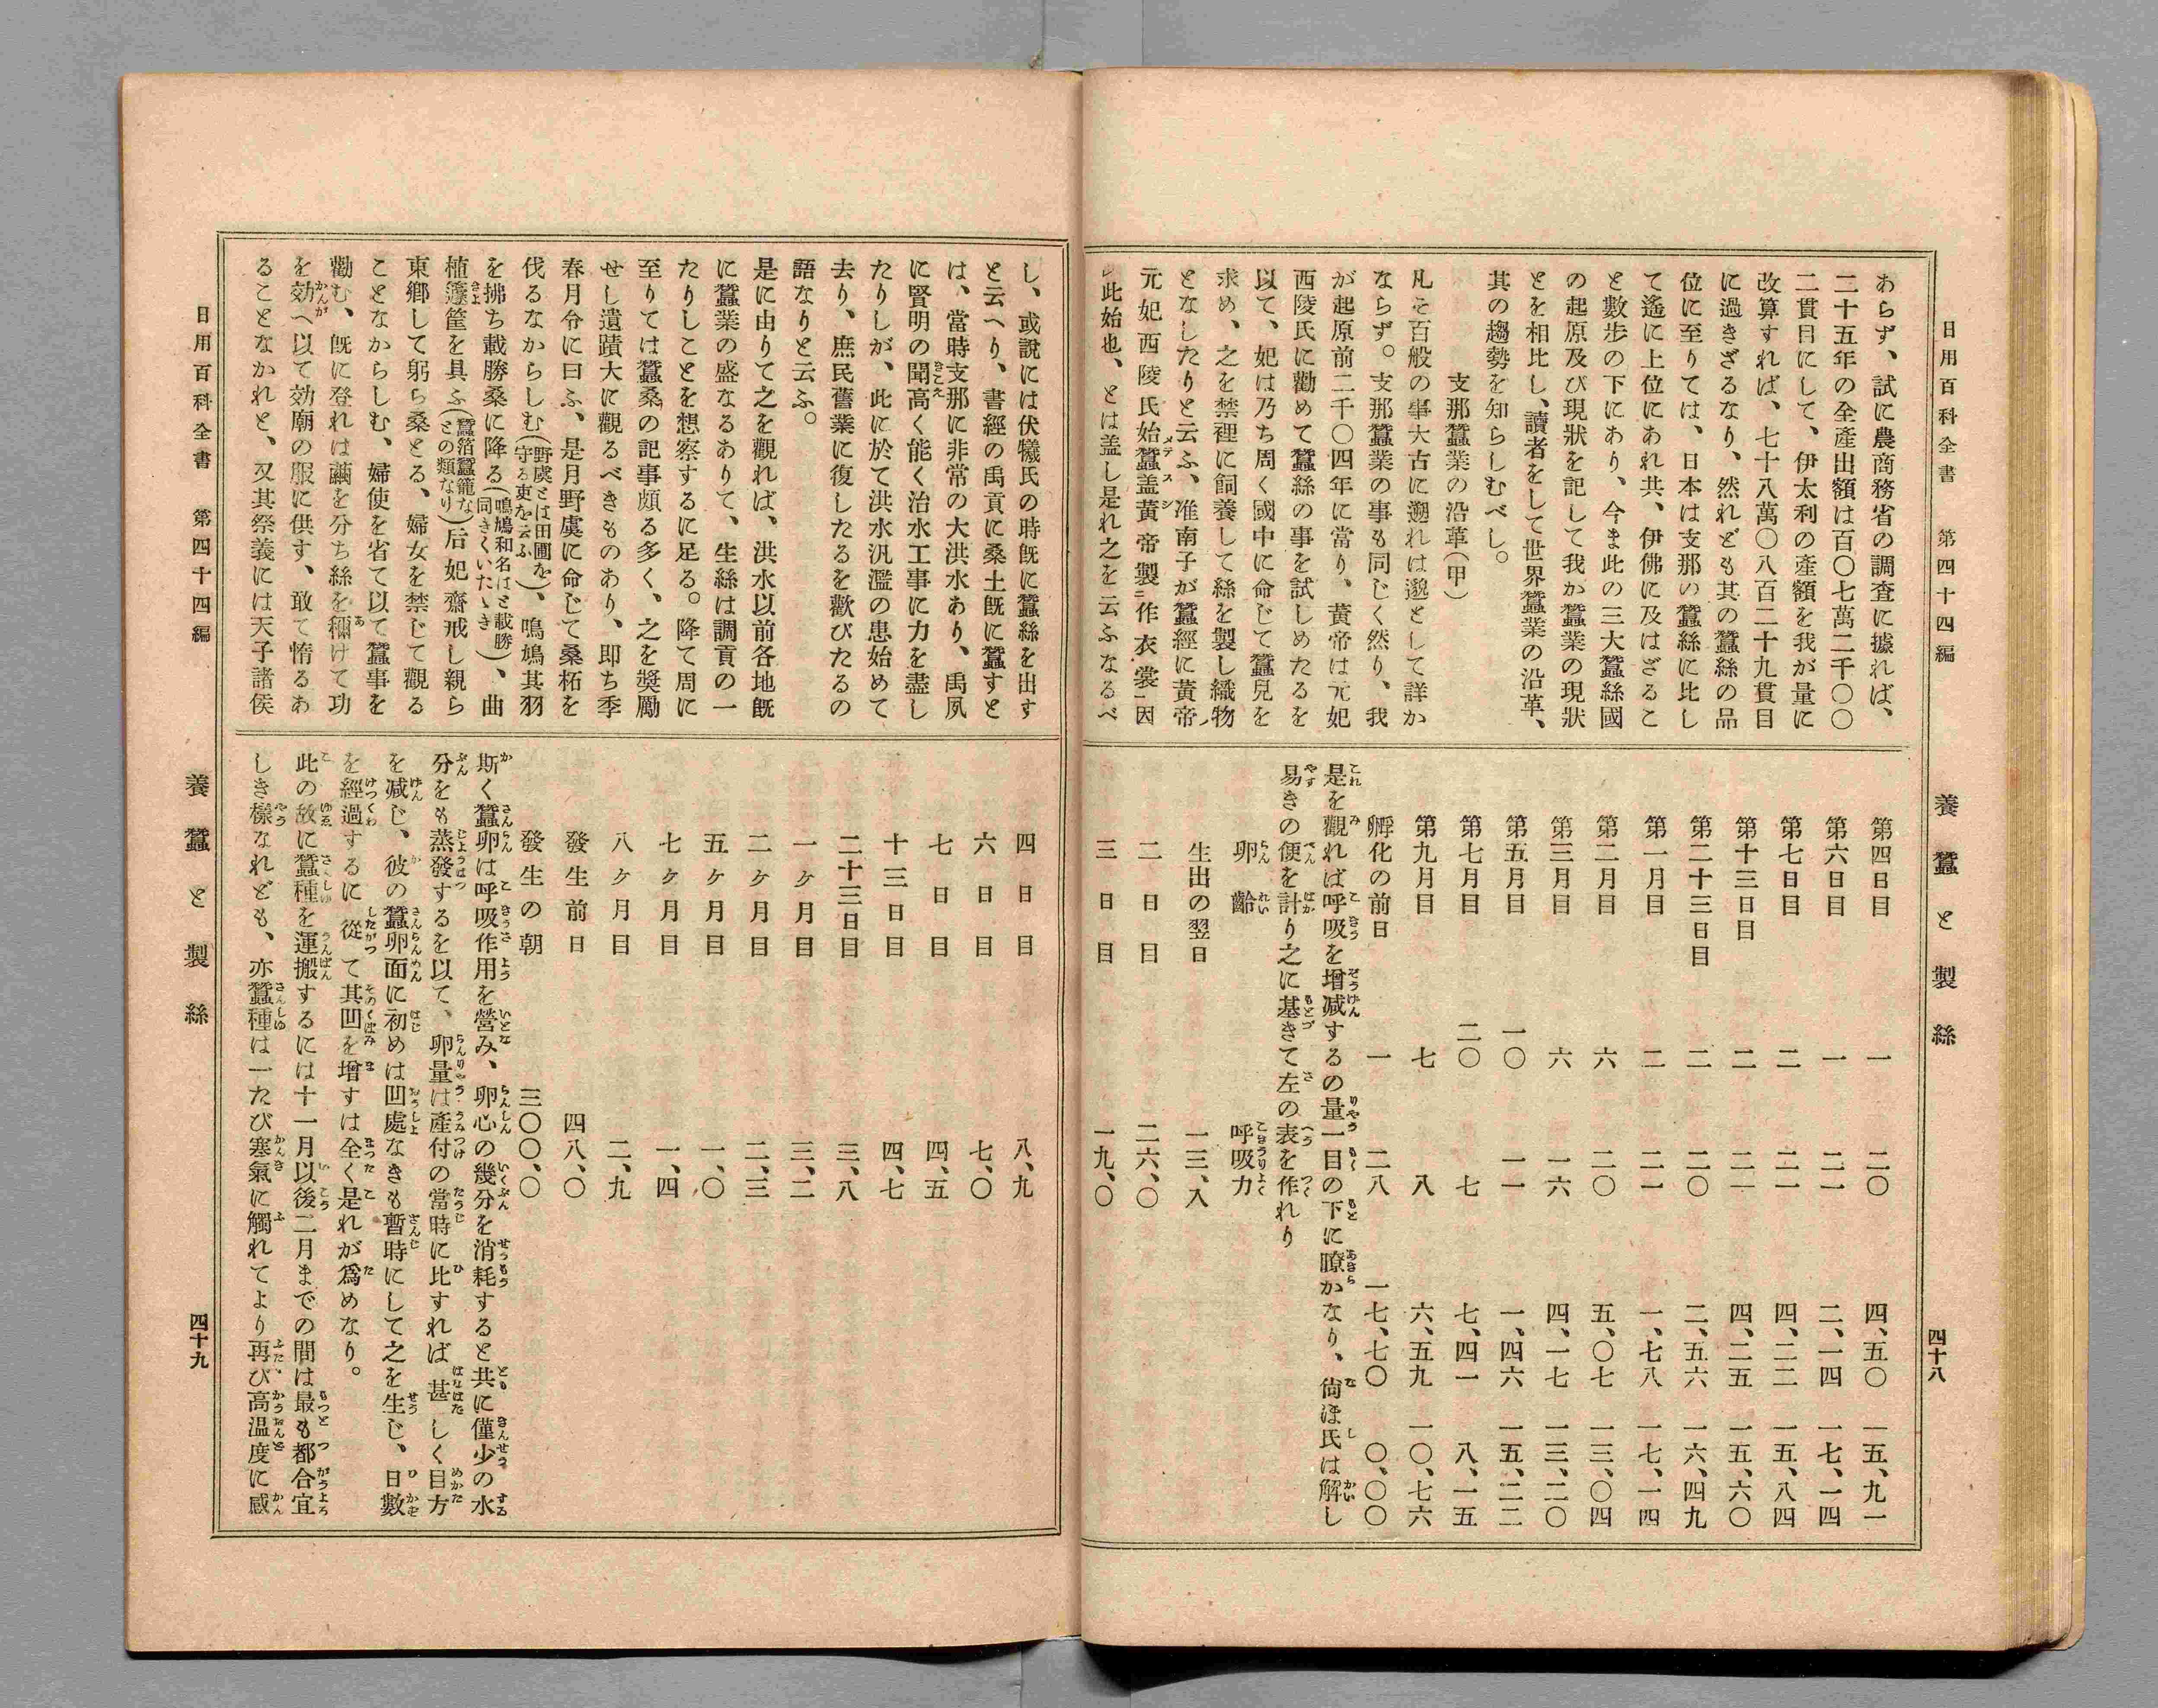 日用百科全書 第四十四編
養蠶と製絲
四十八
あらず、試に農商務省の調査に據れば、
二十五年の全產出額は百〇七萬二千〇〇
二貫目にして、伊太利の產額を我が量に
改算すれば、七十八萬〇八百二十九貫目
に過きざるなり、然れども其の蠶絲の品
位に至りては、日本は支那の蠶絲に比し
て遙に上位にあれ共、伊佛に及はざるこ
と數步の下にあり、今ま此の三大蠶絲國
の起原及び現狀を記して我か蠶業の現狀
とを相比し、讀者をして世界蠶業の沿革、
其の趨勢を知らしむべし。
支那蠶業の沿革(甲)
凡そ百般の事大古に遡れは邈として詳か
ならず。支那蠶業の事も同じく然り、我
が起原前二千〇四年に當り、黃帝は元妃
西陵氏に勸めて蠶絲の事を試しめたるを
以て、妃は乃ち周く國中に命じて蠶兒を
求め、之を禁裡に飼養して絲を製し織物
となしたりと云ふ、准南子が蠶經に黃帝ノ
元妃西陵氏始蠶盖黃帝製ニ作衣裳一因
此始也、とは盖し是れ之を云ふなるべ
第四日目 一 二〇 四、五〇 一五、九一
第六日目 一 二一 二、一四 一七、一四
第七日目 二 二一 四、二二 一五、八四
第十三日目 二 二一 四、二五 一五、六〇
第二十三日目 二 二〇 二、五六 一六、四九
第一月目 二 二一 一、七八 一七、一四
第二月目 六 二〇 五、〇七 一三、〇四
第三月目 六 一六 四、一七 一三、二〇
第五月目 一〇 一一 一、四六 一五、二二
第七月目 二〇 七 七、四一 八、一五
第九月目 七 八 六、五九 一〇、七六
孵化の前日 一 二八 一七、七〇 〇、〇〇
是を觀れば呼吸を增减するの量一目の下に瞭かなり、尙ほ氏は解し
易きの便を計り之に基きて左の表を作れり
卵齡 呼吸力
生出の翌日 一三、八
二日目 二六、〇
三日目 一九、〇
し、或說には伏犧氏の時既に蠶絲を出す
と云へり、書經の禹貢に桑土既に蠶すと
は、當時支那に非常の大洪水あり、禹夙
に賢明の聞高く能く治水工事に力を盡し
たりしが、此に於て洪水汎濫の患始めて
去り、庶民舊業に復したるを歡びたるの
語なりと云ふ。
是に由りて之を觀れば、洪水以前各地既
に蠶業の盛なるありて、生絲は調貢の一
たりしことを想察するに足る。降て周に
至りては蠶桑の記事頗る多く、之を奬勵
せし遺蹟大に觀るべきものあり、即ち季
春月令に曰ふ、是月野虞に命じて桑柘を
伐るなからしむ(野虞とは田圃を守る吏を云ふ)、鳴鳩其羽
を拂ち載勝桑に降る(鳴鳩和名はと載勝同きくいたゝき)、曲
植籧筐を具ふ(蠶箔蠶籠などの類なり)后妃齋戒し親ら
東鄕して躬ら桑とる、婦女を禁じて觀る
ことなからしむ、婦使を省て以て蠶事を
勸む、既に登れは繭を分ち絲を稱けて功
を効へ以て効廟の服に供す、敢て惰るあ
ることなかれと、又其祭義には天子諸侯
四日目 八、九
六日目 七、〇
七日目 四、五
十三日目 四、七
二十三日目 三、八
一ヶ月目 三、二
二ヶ月目 二、三
五ヶ月目 一、〇
七ヶ月目 一、四
八ヶ月目 二、九
發生前日 四八、〇
發生の朝 三〇〇、〇
斯く蠶卵は呼吸作用を營み、卵心の幾分を消耗すると共に僅少の水
分をも蒸發するを以て、卵量は產付の當時に比すれば甚しく目方
を减じ、彼の蠶卵面に初めは凹處なきも暫時にして之を生じ、日數
を經過するに從て其凹を增すは全く是れが爲めなり。
此の故に蠶種を運搬するには十一月以後二月までの間は最も都合宜
しき樣なれども、亦蠶種は一たび寒氣に觸れてより再び高温度に感
日用百科全書 第四十四編
養蠶と製絲
四十九